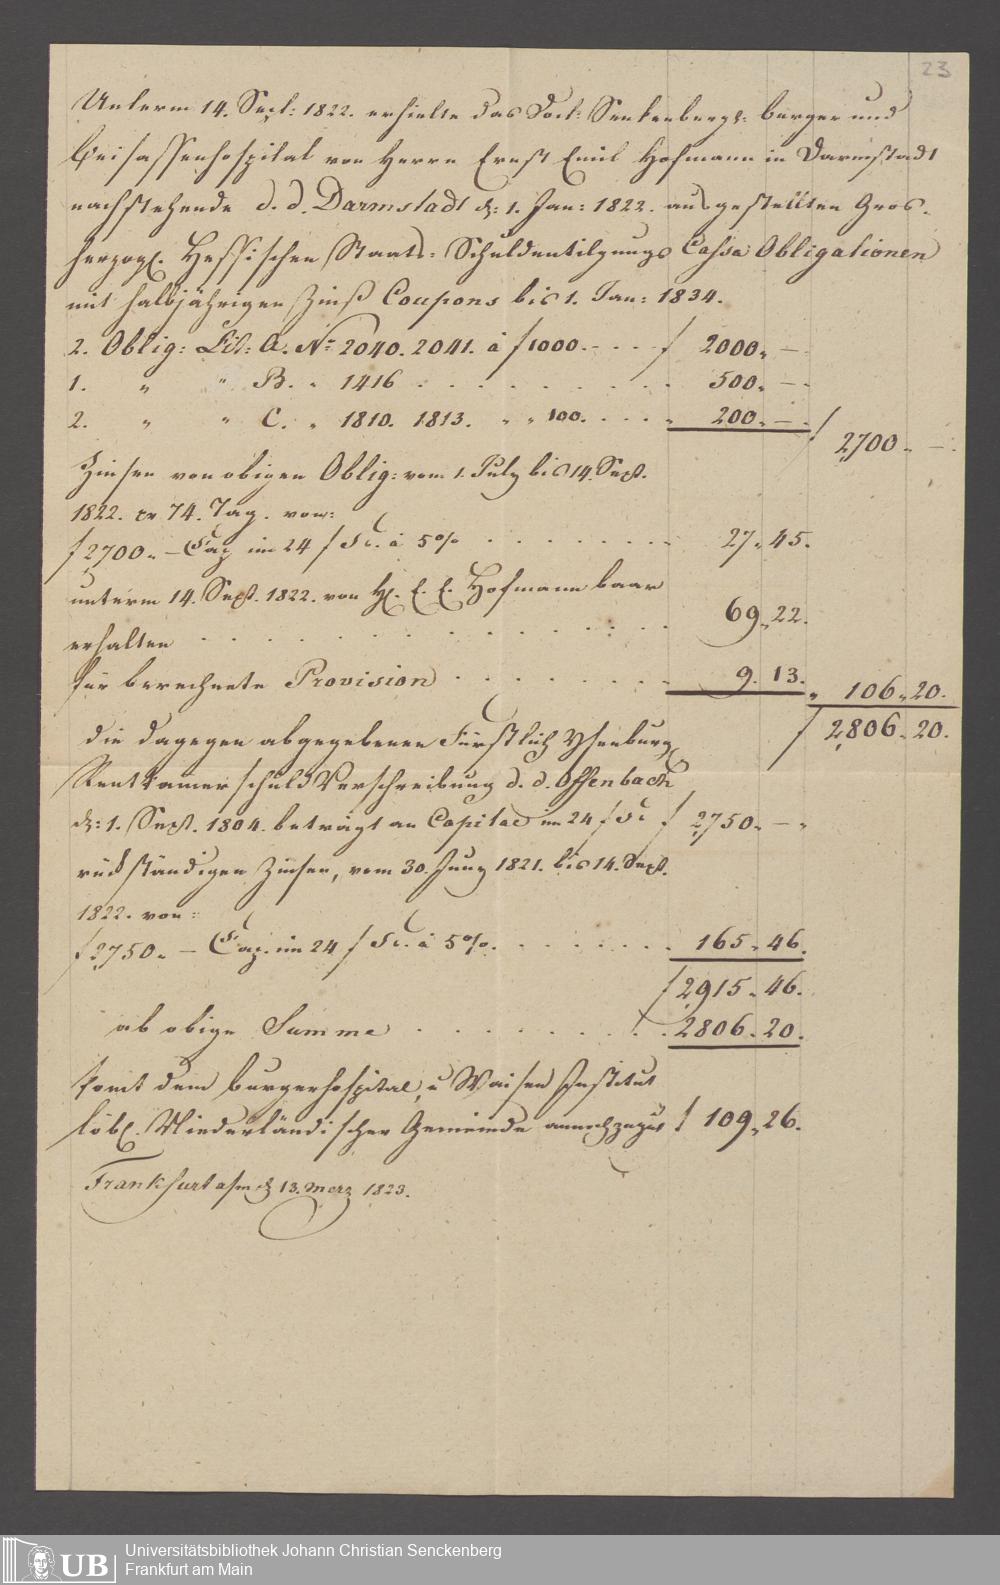 23
Unterm 14. Sept: 1822. erhielte das Doct: Senkenbergs: burger und
Beisassenhospital von Herrn Ernst Emil Hofmann in Darmstadt
nachstehende d. d. Darmstadt d: 1. Jan: 1822. ausgestellten Gros-
herzogl. Hessischen Staats-Schuldentilgungs Cassa Obligationen
mit halbjährigen Zinß Coupons bis 1. Jan: 1834.
2. Oblig: Lit: A. No 2040. 2041. à f 1000. - - - f 2000 „ —
1. „ „ B. „ 1416 . . . . . . . 500 „ —
2. „ „ C. „ 1810. 1813. „ „ 100. . . . „ 200 „ — f 2,700 „ —
Zinsen von obigen Oblig: vom 1. July bis 14. Sept.
1822. pr 74. Tag. von:
f 2700 „ — Cap im 24 f Fs. à 5% . . . . . . 27 „ 45.
unterm 14. Sept. 1822. von H. E. E. Hofmann baar
erhalten . . . . . . . . . . 69 „ 22.
für berechnete Provision . . . . . . . 9. 13. „ 106 „ 20.
f 2,806 „ 20.
die dagegen abgegebenen Fürstlich Ysenburg
Rentkamer schuld Verschreibung d. d. Offenbach
d: 1. Sept. 1804. beträgt an Capital im 24 f Fs f 2,750 „ — „
rückständigen Zinsen, vom 30. Juny 1821. bis 14. Sept.
1822. von:
f 2,750 „ — Cap. im 24 f Fs. à 5%. . . . . . . 165 „ 46.
f 2,915 „ 46.
ab obige Summe . . . . . . . 2806 „ 20.
komt dem burgerhospital, u Waisen Institut
löbl. Niederländischer Gemeinde annoch zugut f 109 „ 26.
Frankfurt a/m d 13. Merz 1823.
UB
Universitätsbibliothek Johann Christian Senckenberg
Frankfurt am Main